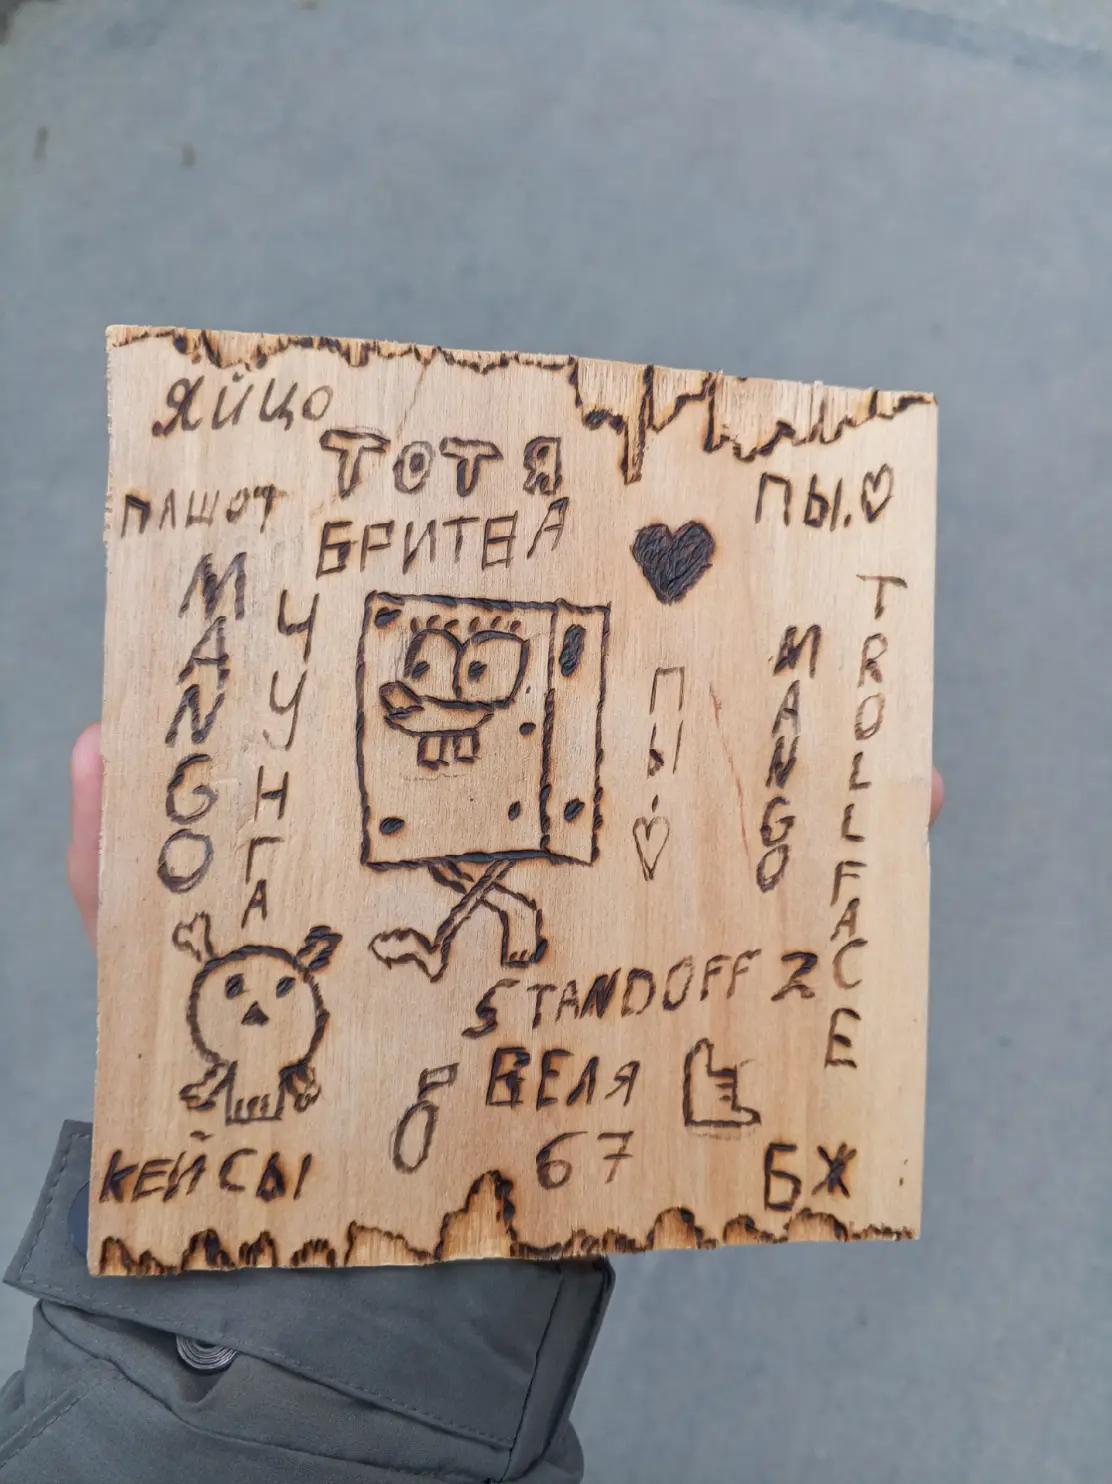 ЯЙЦО
ТОТЯ
ПАШОТ
БРИТВА
ПЫ.♡
MANGO
ЧУНГА
ПЫ.♡
MANGO
TROLLFACE
STANDOFF 2
ВЕЛЯ
67
КЕЙСЫ
БЖ